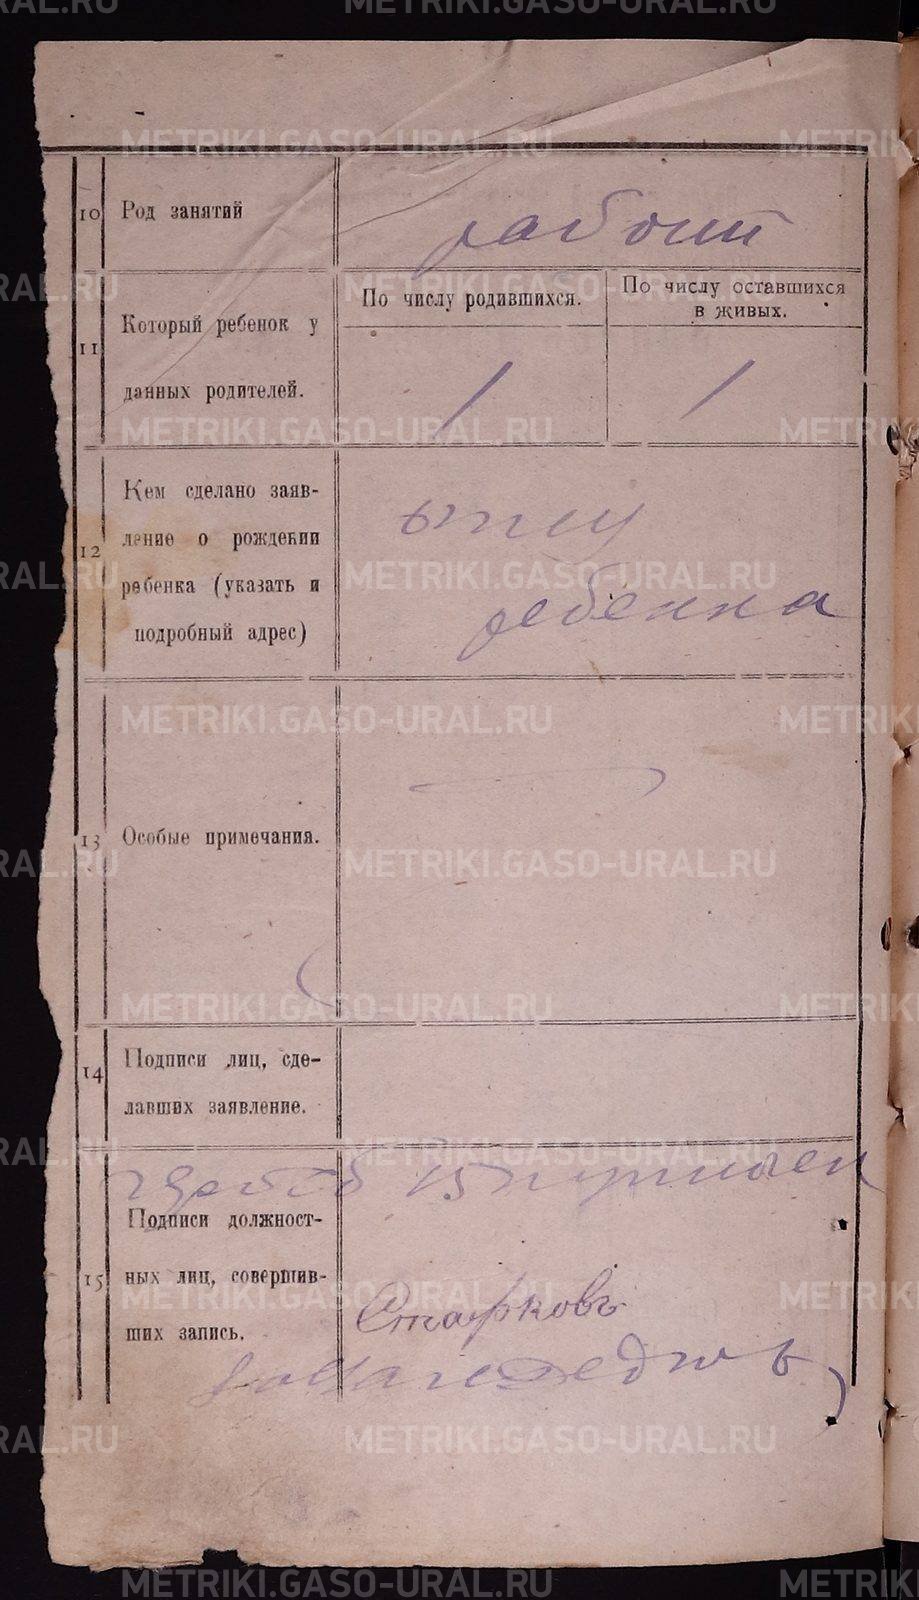 METRIKI.GASO-URAL.RU
10 Род занятий
рабоит
11 Который ребенок у
данных родителей.
По числу родившихся.
По числу оставшихся
в живых.
1
1
12 Кем сделано заяв-
ление о рождении
ребенка (указать и
подробный адрес)
ребенка
13 Особые примечания.
14 Подписи лиц, сде-
лавших заявление.
15 Подписи должност-
ных лиц, совершив-
ших запись.
Старковъ